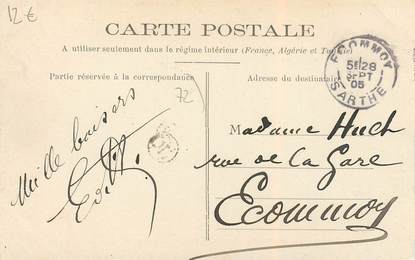 12€
CARTE POSTALE
A utiliser seulement dans le régime intérieur (France, Algérie et Tunisie)
Partie réservée à la correspondance
Adresse du destinataire
ECOMMOY
5E/28
SEPT
05
SARTHE
72
Mille baisers
Edith.
Madame Huet
rue de la Gare
Ecommoy